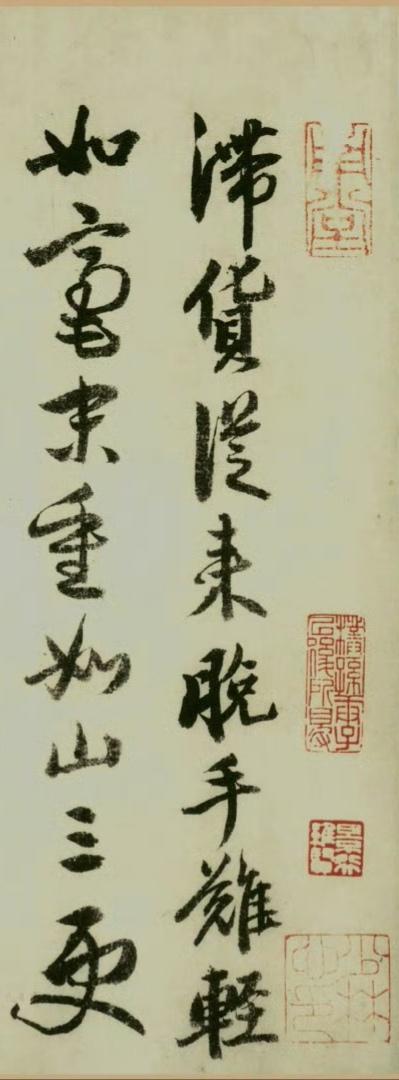 滯貨從來脫手難輕
如毫末重如山三更